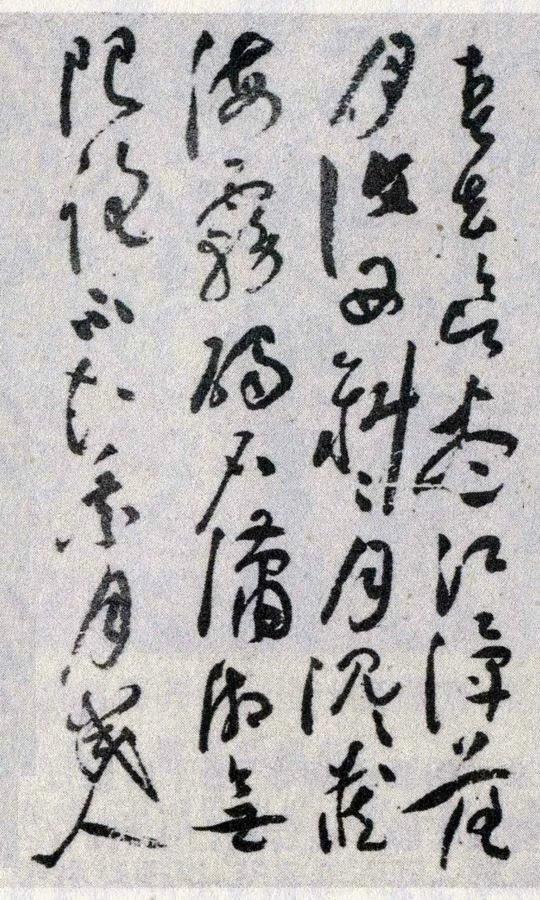 春去欲盡江潭落
月復西斜〻月沉〻藏
海霧碣石瀟湘無
限路不知乘月幾人